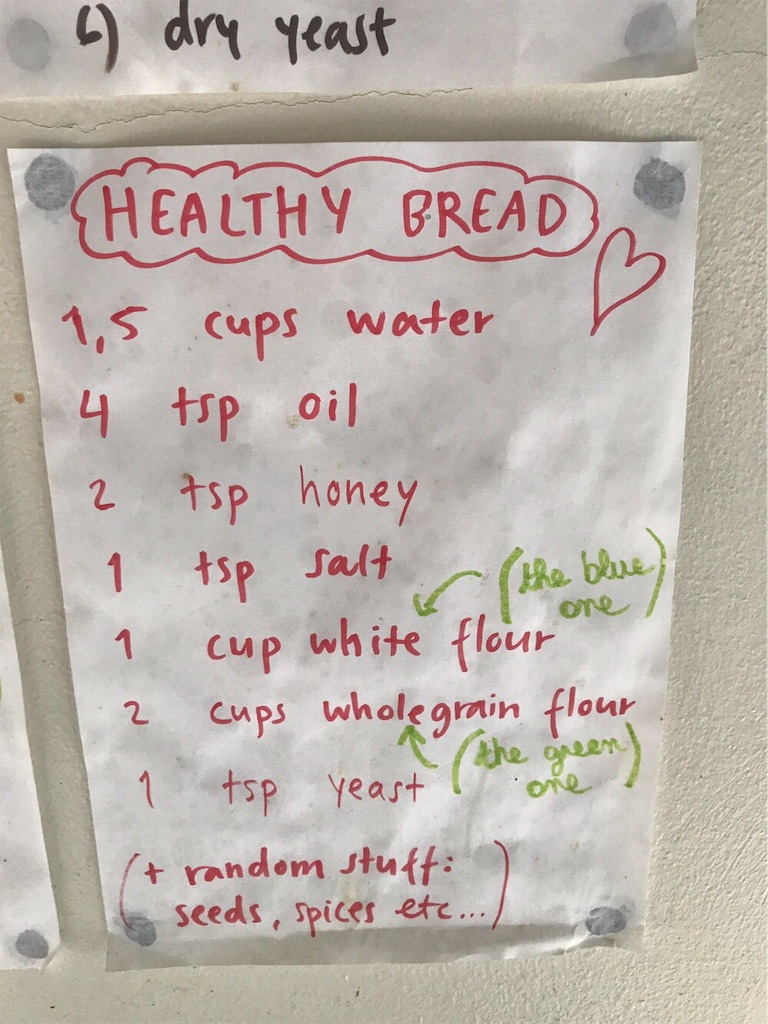 6) dry yeast
HEALTHY BREAD
1,5 cups water
4 tsp oil
2 tsp honey
1 tsp salt
(the blue
one)
1 cup white flour
2 cups wholegrain flour
(the green
one)
1 tsp yeast
(+ random stuff:
seeds, spices etc...)